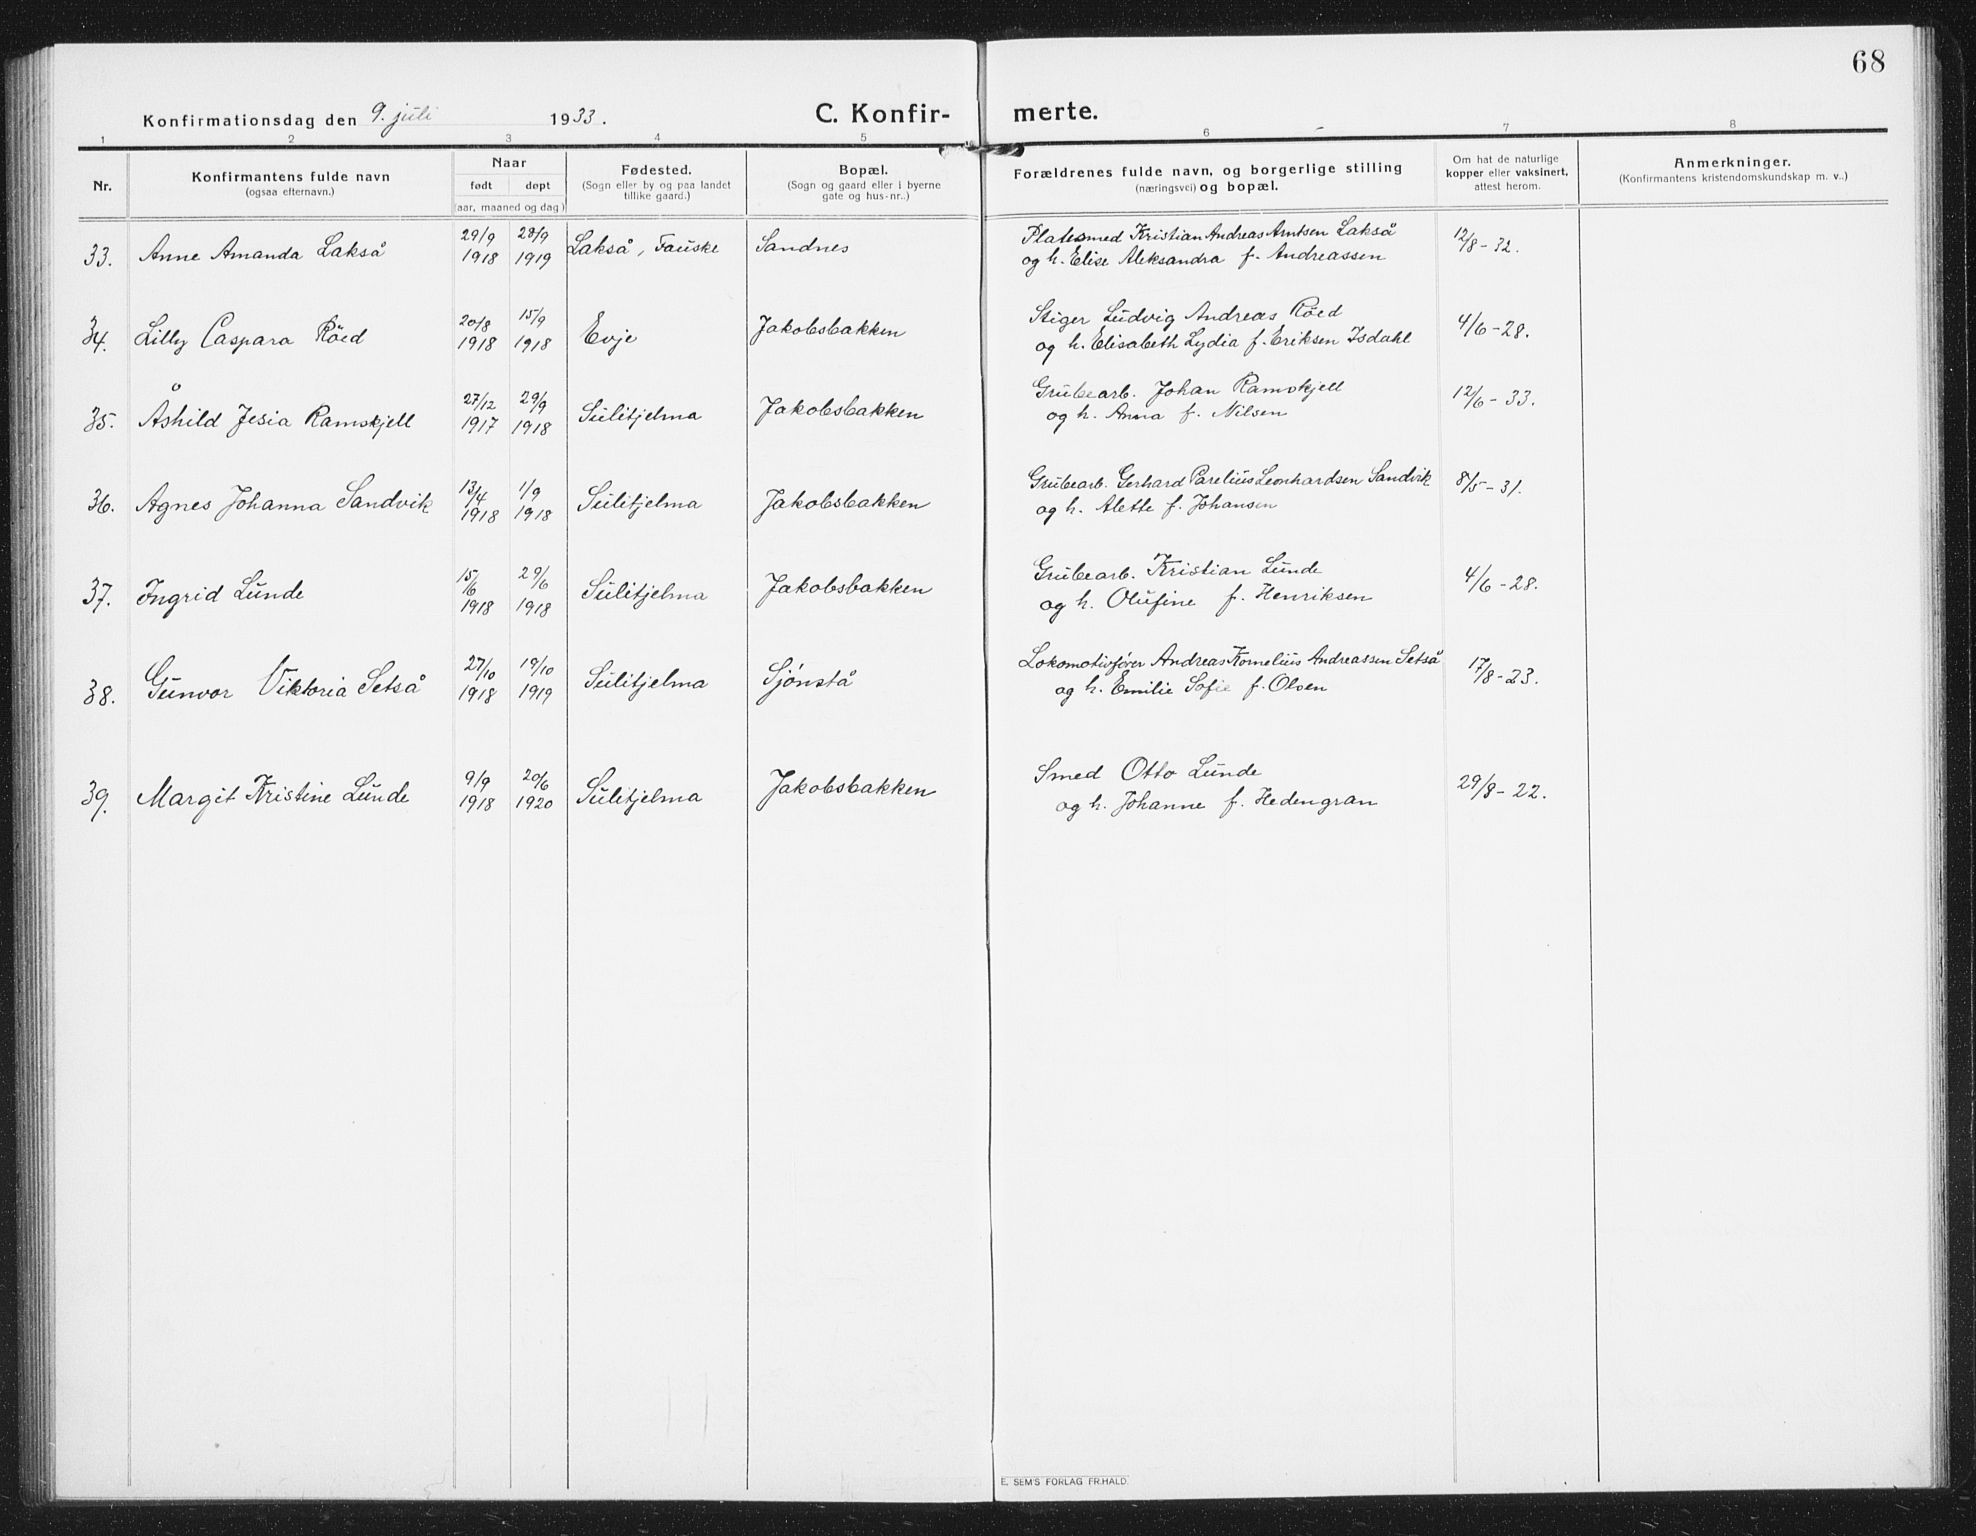 68
Konfirmationsdag den 9. juli 1933.
C. Konfir-
merte.
1 2 3 4 5 6 7 8
Nr.
Konfirmantens fulde navn
(ogsaa efternavn.)
Naar
født døpt
(aar, maaned og dag)
Fødested.
(Sogn eller by og paa landet
tillike gaard.)
Bopæl.
(Sogn og gaard eller i byerne
gate og hus-nr..)
Forældrenes fulde navn, og borgerlige stilling
(næringsvei) og bopæl.
Om hat de naturlige
kopper eller vaksinert,
attest herom.
Anmerkninger.
(Konfirmantens kristendomskundskap m. v..)
29/9 28/9 Platesmed Kristian Andreas Arntsen Lakså
33. Anne Amanda Lakså 1918 1919 Lakså, Fauske Sandnes og h. Elise Aleksandra f. Andreassen 12/8-32.
20/8 15/9 Stiger Ludvig Andreas Röed
34. Lilly Caspara Röed 1918 1918 Evje Jakobsbakken og h. Elisabeth Lydia f. Eriksen Isdahl 4/6-28.
27/12 29/9 Grubearb. Johan Ramskjell
35. Åshild Jesia Ramskjell 1917 1918 Sulitjelma Jakobsbakken og h. Anna f. Nilsen 12/6-33.
13/4 1/9 Grubearb. Gerhard Parelius Leonhardsen Sandvik
36. Agnes Johanna Sandvik 1918 1918 Sulitjelma Jakobsbakken og h. Alette f. Johansen 8/5-31.
15/6 29/6 Grubearb. Kristian Lunde
37. Ingrid Lunde 1918 1918 Sulitjelma Jakobsbakken og h. Olufine f. Henriksen 4/6-28.
27/10 19/10 Lokomotivfører Andreas Kornelius Andreassen Setså
38. Gunvor Viktoria Setså 1918 1919 Sulitjelma Sjønstå og h. Emilie Sofie f. Olsen 17/8-23.
9/9 20/6 Smed Otto Lunde
39. Margit Kristine Lunde 1918 1920 Sulitjelma Jakobsbakken og h. Johanne f. Hedengran 29/8-22.
E. SEM'S FORLAG FR.HALD.